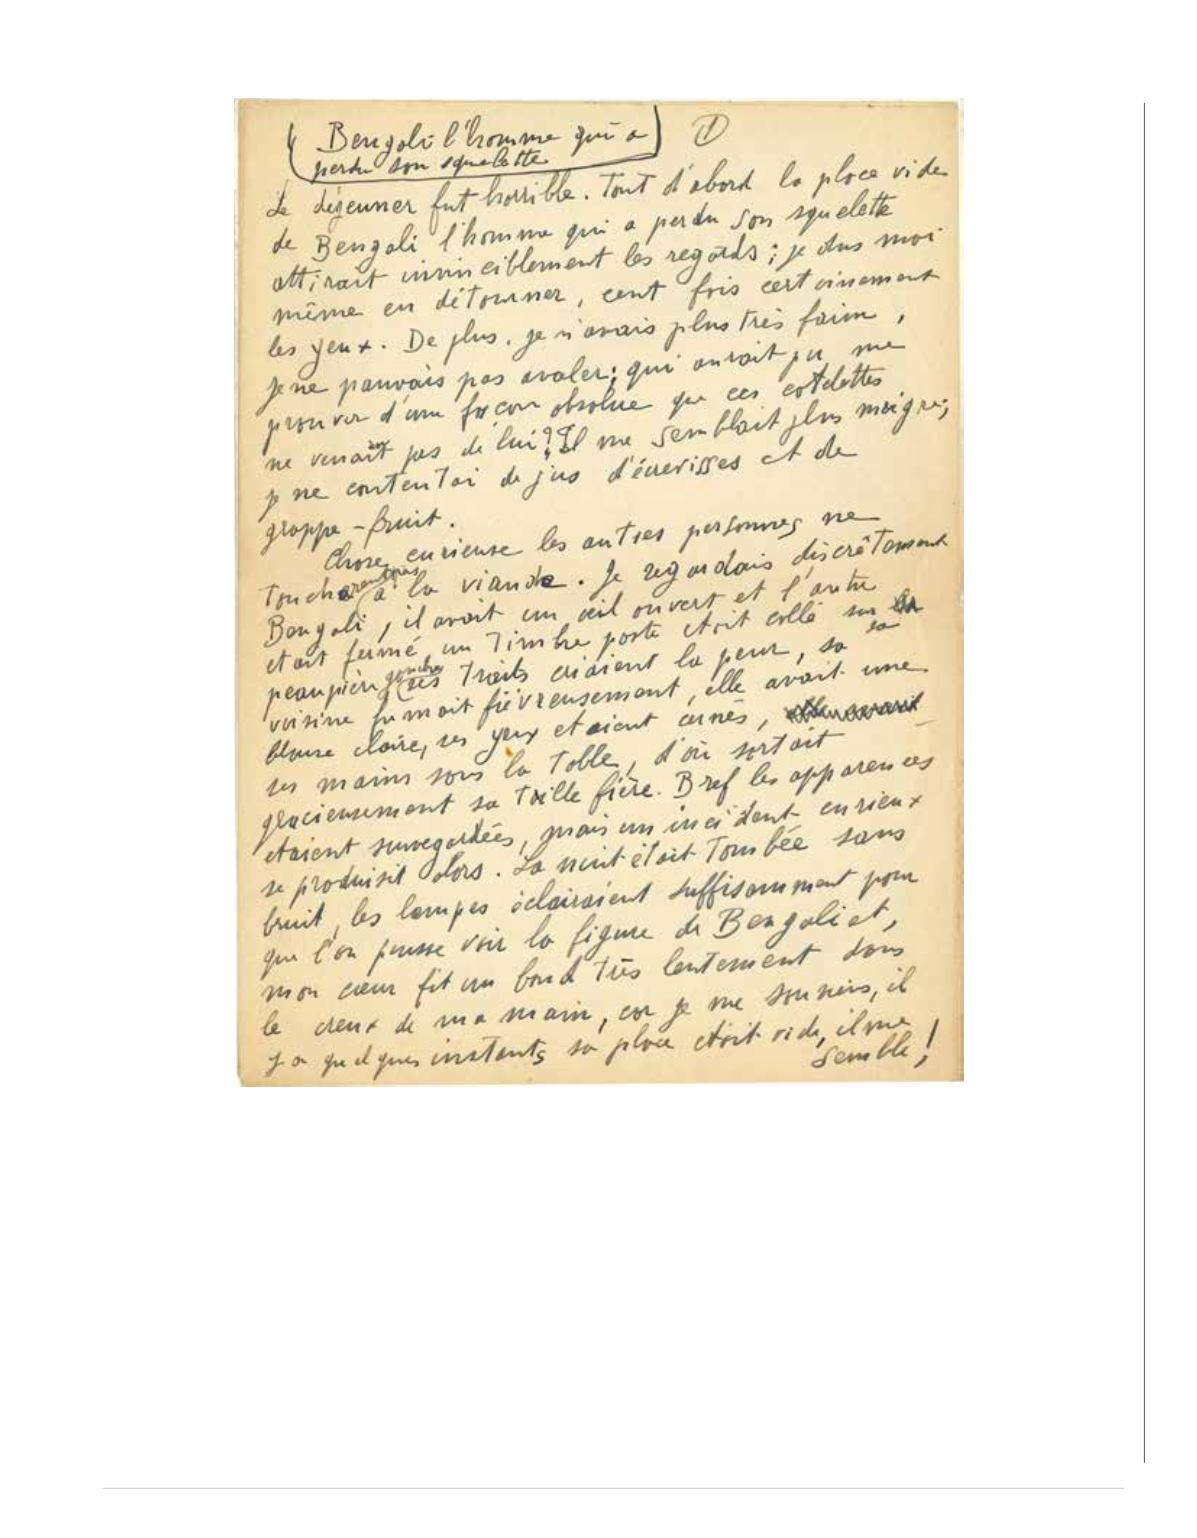 Bengali l'homme qui a ①
perdu son squelette
Le déjeuner fut horrible. Tout d'abord la place vide
de Bengali l'homme qui a perdu son squelette
attirait invinciblement les regards ; je dus moi
même en détourner, cent fois certainement
les yeux. De plus, je n'avais plus très faim,
je ne pouvais pas avaler ; qui aurait pu me
prouver d'une façon absolue que ces cotelettes
ne venaient pas de lui ? Il me semblait plus maigre ;
je me contentai de jus d'écrevisses et de
grappe-fruit.
Chose curieuse les autres personnes ne
touchèrent pas à la viande. Je regardais discrètement
Bengali, il avait un œil ouvert et l'autre
etait fermé, un timbre poste etait collé sur sa
paupière gauche, ses traits criaient la peur, sa
voisine fumait fièvreusement, elle avait une
blouse claire, ses yeux etaient cernés,
ses mains sous la table, d'où sortait
gracieusement sa taille fière. Bref les apparences
etaient sauvegardées, mais un incident curieux
se produisit alors. La nuit était tombée sans
bruit, les lampes éclairaient suffisamment pour
que l'on pusse voir la figure de Bengali et,
mon cœur fit un bond très lentement dans
le creux de ma main, car je me souviens, il
y a quelques instants sa place etait vide, il me
semble !